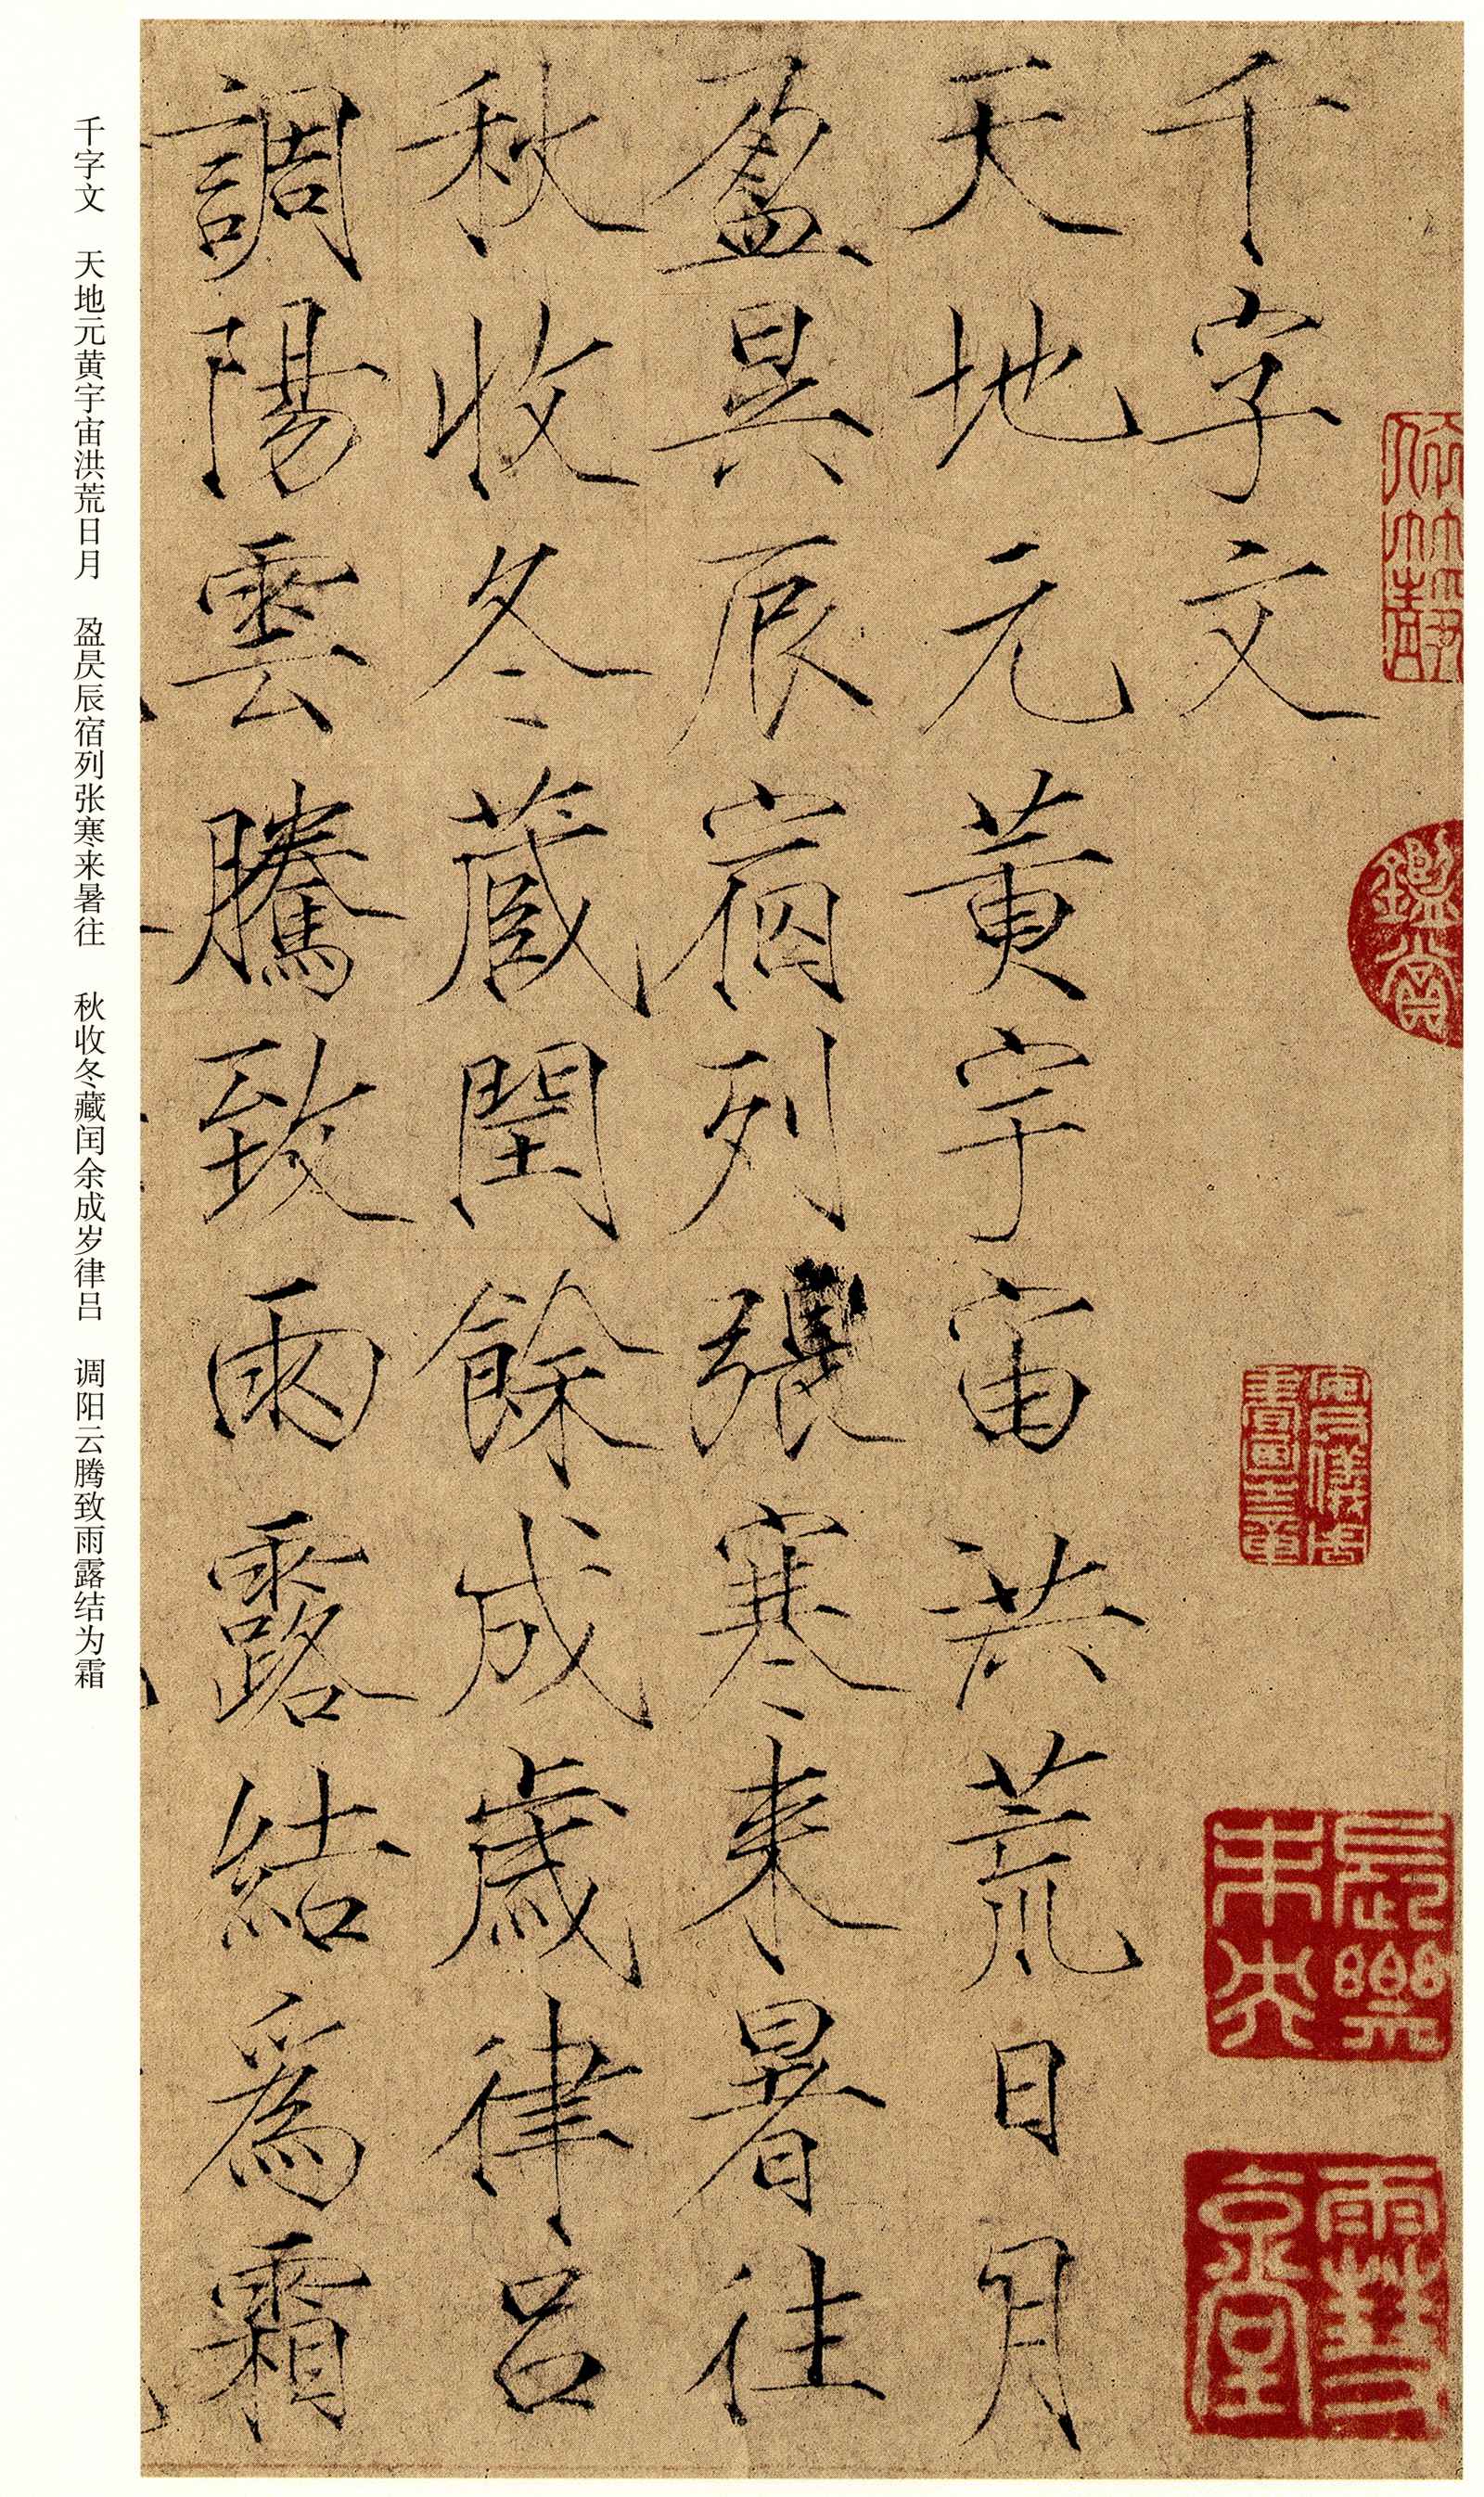 千字文
天地元黄宇宙洪荒日月
盈昃辰宿列張寒来暑往
秋收冬蔵閏餘成歲律呂
調陽雲騰致雨露結爲霜
鑑賞
儀周書畫之章
長樂未央
雪彗堂
千字文 天地元黄宇宙洪荒日月 盈昃辰宿列张寒来暑往 秋收冬藏闰余成岁律吕 调阳云腾致雨露结为霜